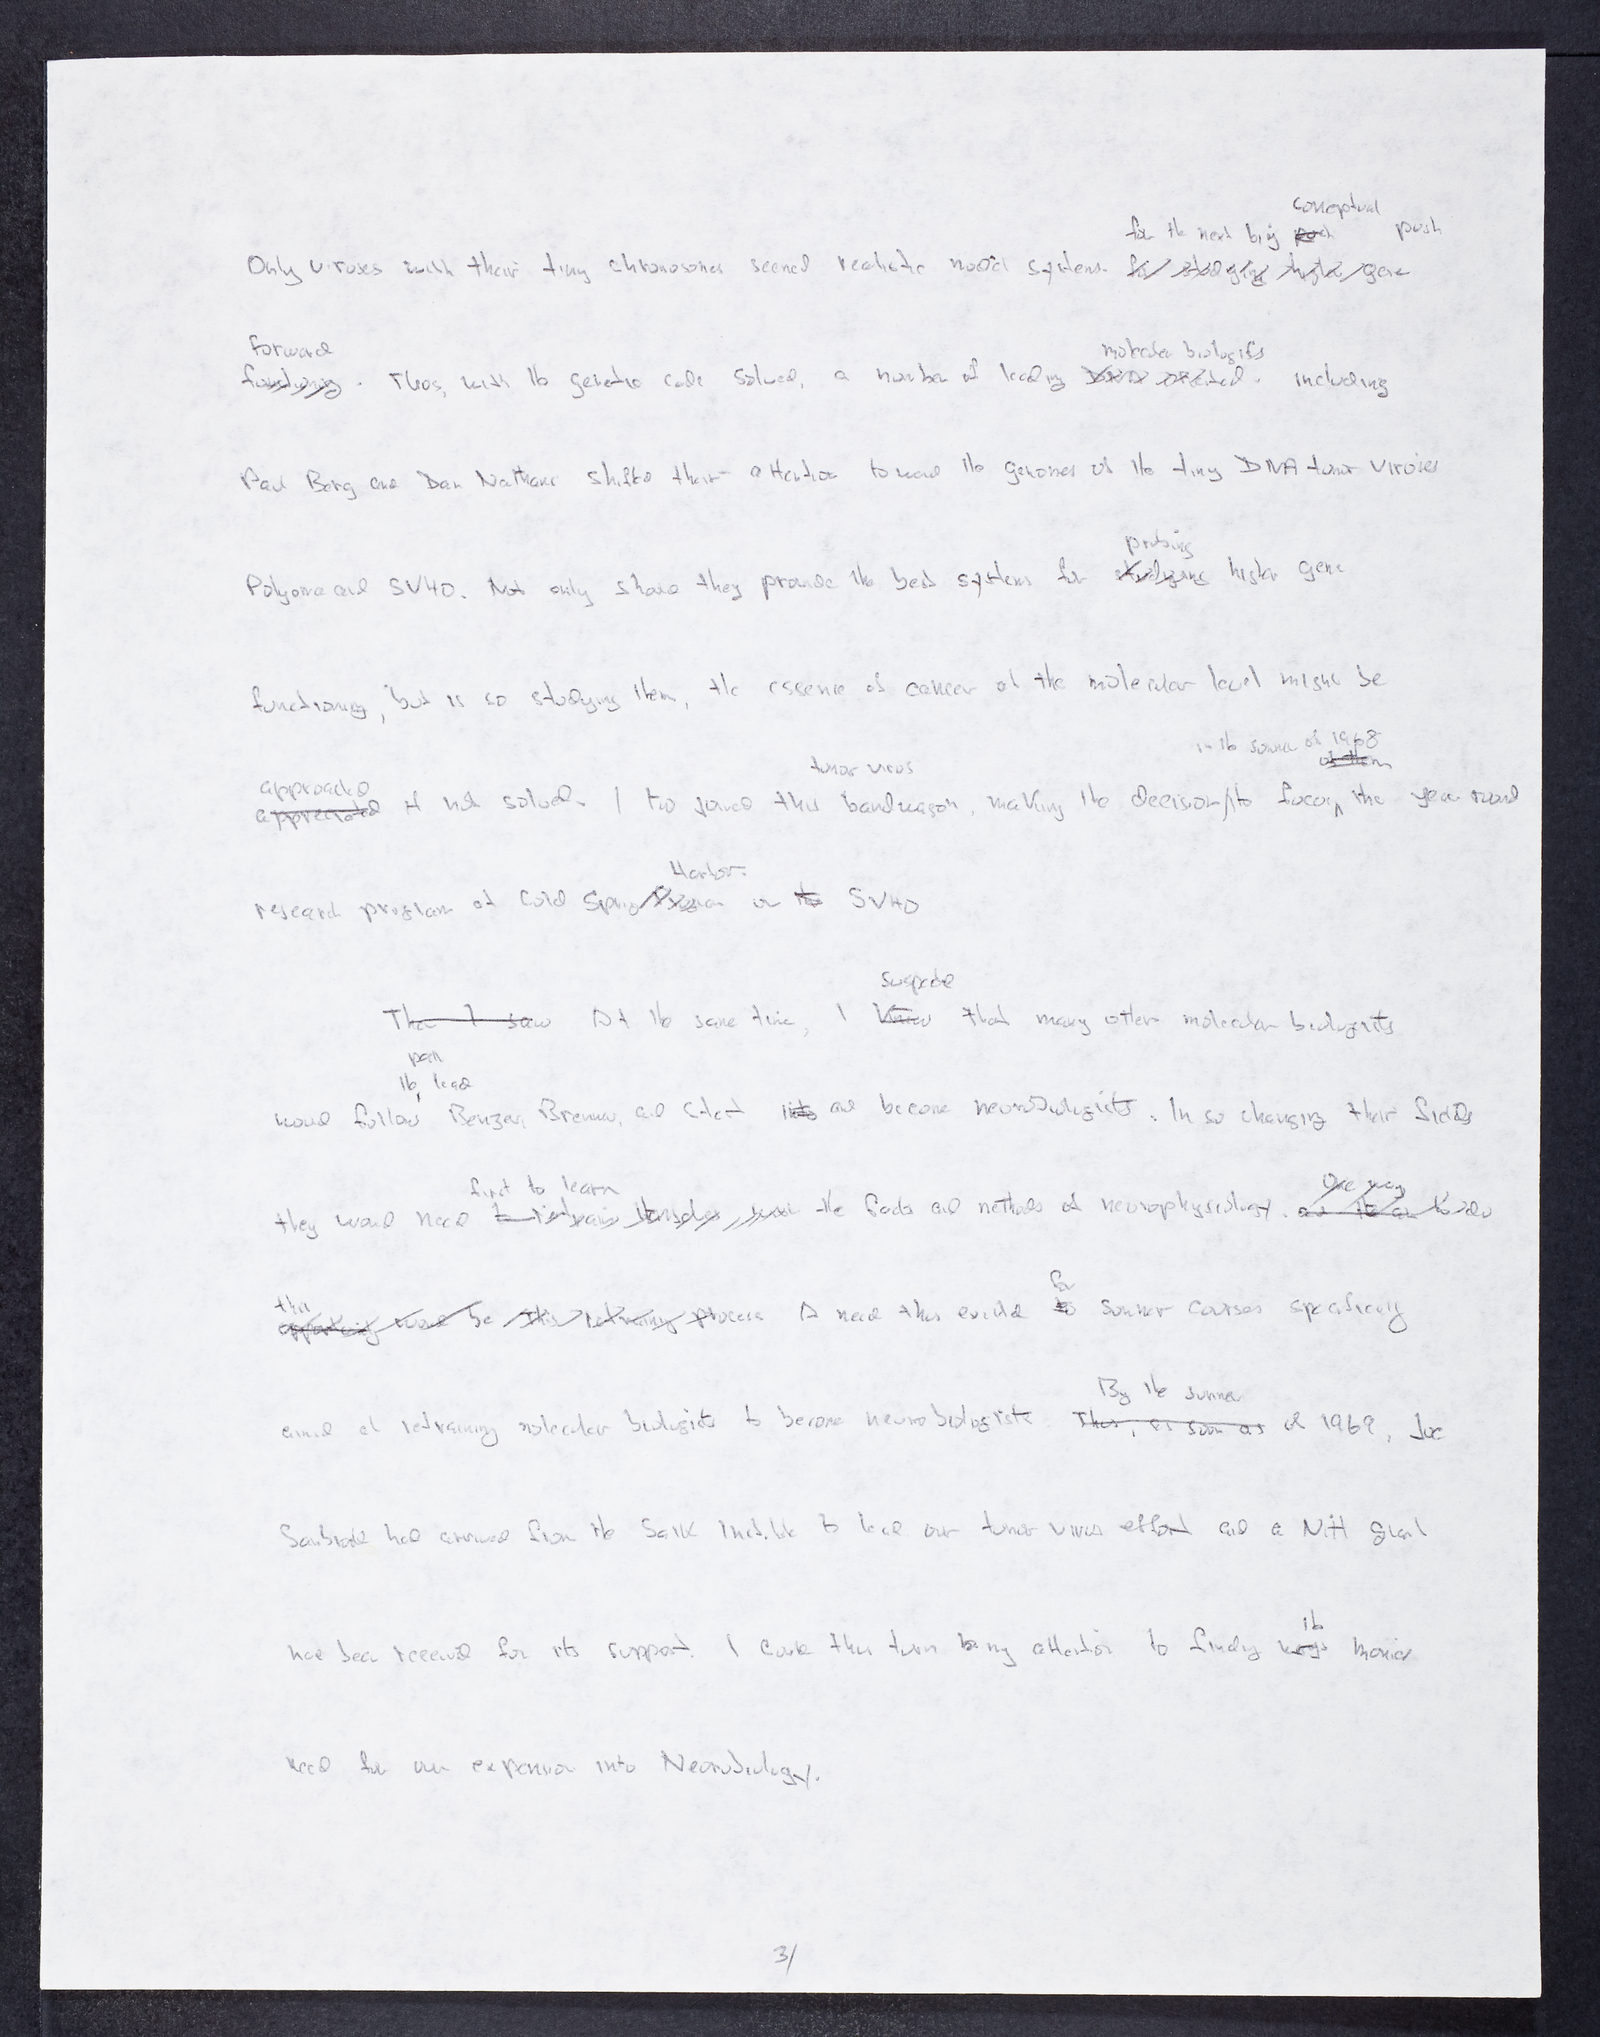 conceptual
for the next big push push
Only viruses with their tiny chromosomes seemed realistic model systems for studying higher gene
forward
functioning. Thus, with the genetic code solved, a number of leading
molecular biologists
including
Paul Berg and Dan Nathans shifted their attention toward the genomes of the tiny DNA tumor viruses
probing
Polyoma and SV40. Not only should they provide the best systems for studying higher gene
functioning, but is so studying them, the essence of cancer at the molecular level might be
approached
tumor virus
in the summer of 1968
of them
appreciated if not solved. I too joined this bandwagon, making the decision to focus the year round
Harbor
research program at Cold Spring on the SV40
suspected
Then I saw At the same time, I knew that many other molecular biologists
path
the lead
would follow Benzer, Brenner, and Stent into and become neurobiologists. In so changing their fields
first to learn
One way
they would need to retrain themselves the facts and methods of neurophysiology. to do
this
for
opportunity would be this retraining process A need thus existed to summer courses specifically
By the summer
aimed at retraining molecular biologists to become neurobiologists. Thus, as soon as of 1969, Joe
Sambrook had arrived from the Salk Institute to lead our tumor virus effort and a NIH grant
the
had been received for its support. I could thus turn to my attention to finding ways monies
need for our expansion into Neurobiology.
3/